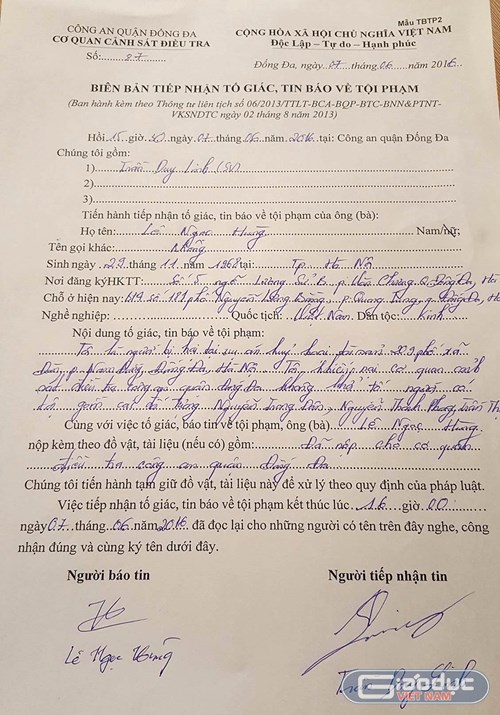 Mẫu TBTP2
CÔNG AN QUẬN ĐỐNG ĐA
CƠ QUAN CẢNH SÁT ĐIỀU TRA
Số: 27
CỘNG HÒA XÃ HỘI CHỦ NGHĨA VIỆT NAM
Độc Lập – Tự do – Hạnh phúc
Đống Đa, ngày 07 tháng 06 năm 2016
BIÊN BẢN TIẾP NHẬN TỐ GIÁC, TIN BÁO VỀ TỘI PHẠM
(Ban hành kèm theo Thông tư liên tịch số 06/2013/TTLT-BCA-BQP-BTC-BNN&PTNT-
VKSNDTC ngày 02 tháng 8 năm 2013)
Hồi 15 giờ 40 ngày 07 tháng 06 năm 2016 tại: Công an quận Đống Đa
Chúng tôi gồm:
1) Trần Duy Linh
2)
3)
Tiến hành tiếp nhận tố giác, tin báo về tội phạm của ông (bà):
Họ tên: Lê Ngọc Hùng Nam/nữ:
Tên gọi khác: Không
Sinh ngày 29 tháng 11 năm 1968 tại TP Hà Nội
Nơi đăng kýHKTT: Số 5 ngõ Lương Sử B, p. Văn Chương Q. Đống Đa, Hà
Chỗ ở hiện nay: số 181 phố Nguyễn Lương Bằng, p. Quang Trung, q. Đống Đa, H
Nghề nghiệp: Quốc tịch: Việt Nam Dân tộc: Kinh
Nội dung tố giác, tin báo về tội phạm:
Tôi là người bị hại tài sản phố xã
Đàn, p. Nam Đồng, Đống Đa, Hà Nội. Tôi khiếu nại cơ quan cảnh
sát điều tra công an quận Đống Đa không khởi tố người có
tên gồm Nguyễn Trọng Nguyễn Thành Trần Th
Cùng với việc tố giác, báo tin về tội phạm, ông (bà) Lê Ngọc Hùng
nộp kèm theo đồ vật, tài liệu (nếu có) gồm: Đã nộp cho cơ quan
điều tra công an quận Đống Đa.
Chúng tôi tiến hành tạm giữ đồ vật, tài liệu này để xử lý theo quy định của pháp luật.
Việc tiếp nhận tố giác, tin báo về tội phạm kết thúc lúc 16 giờ 00
ngày 07 tháng 06 năm 2016 đã đọc lại cho những người có tên trên đây nghe, công
nhận đúng và cùng ký tên dưới đây.
Người báo tin
Người tiếp nhận tin
Lê Ngọc Hùng
Trần Duy Linh
Giáo dục
VIỆT NAM